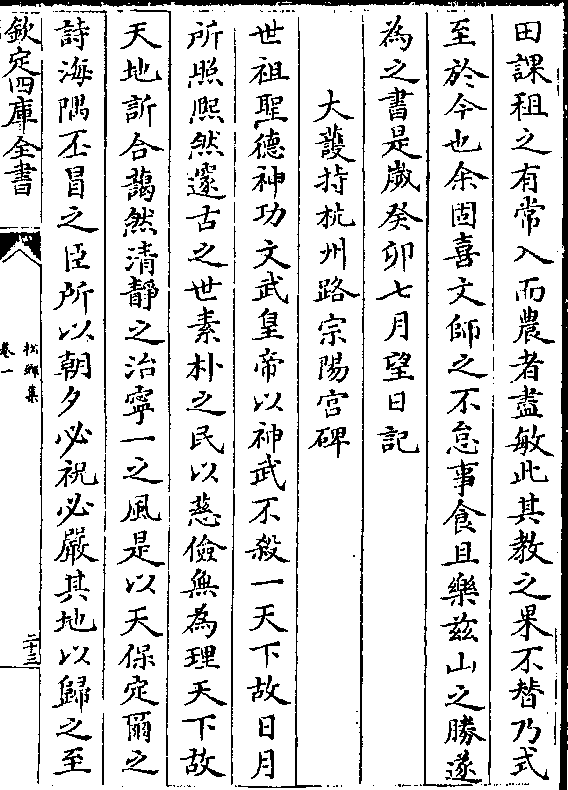 田課租之有常入而農者盡敏此其教之果不替乃式
至於今也余固喜文師之不怠事食且樂茲山之勝遂
為之書是歲癸卯七月望日記
大護持杭州路宗陽宫碑
世祖聖德神功文武皇帝以神武不殺一天下故日月
所照熈然邃古之世素朴之民以慈儉無為理天下故
天地訢合藹然清静之治寧一之風是以天保定爾之
詩海隅丕冒之臣所以朝夕必祝必嚴其地以歸之至
欽定四庫全書
松鄉集
卷一
二十三